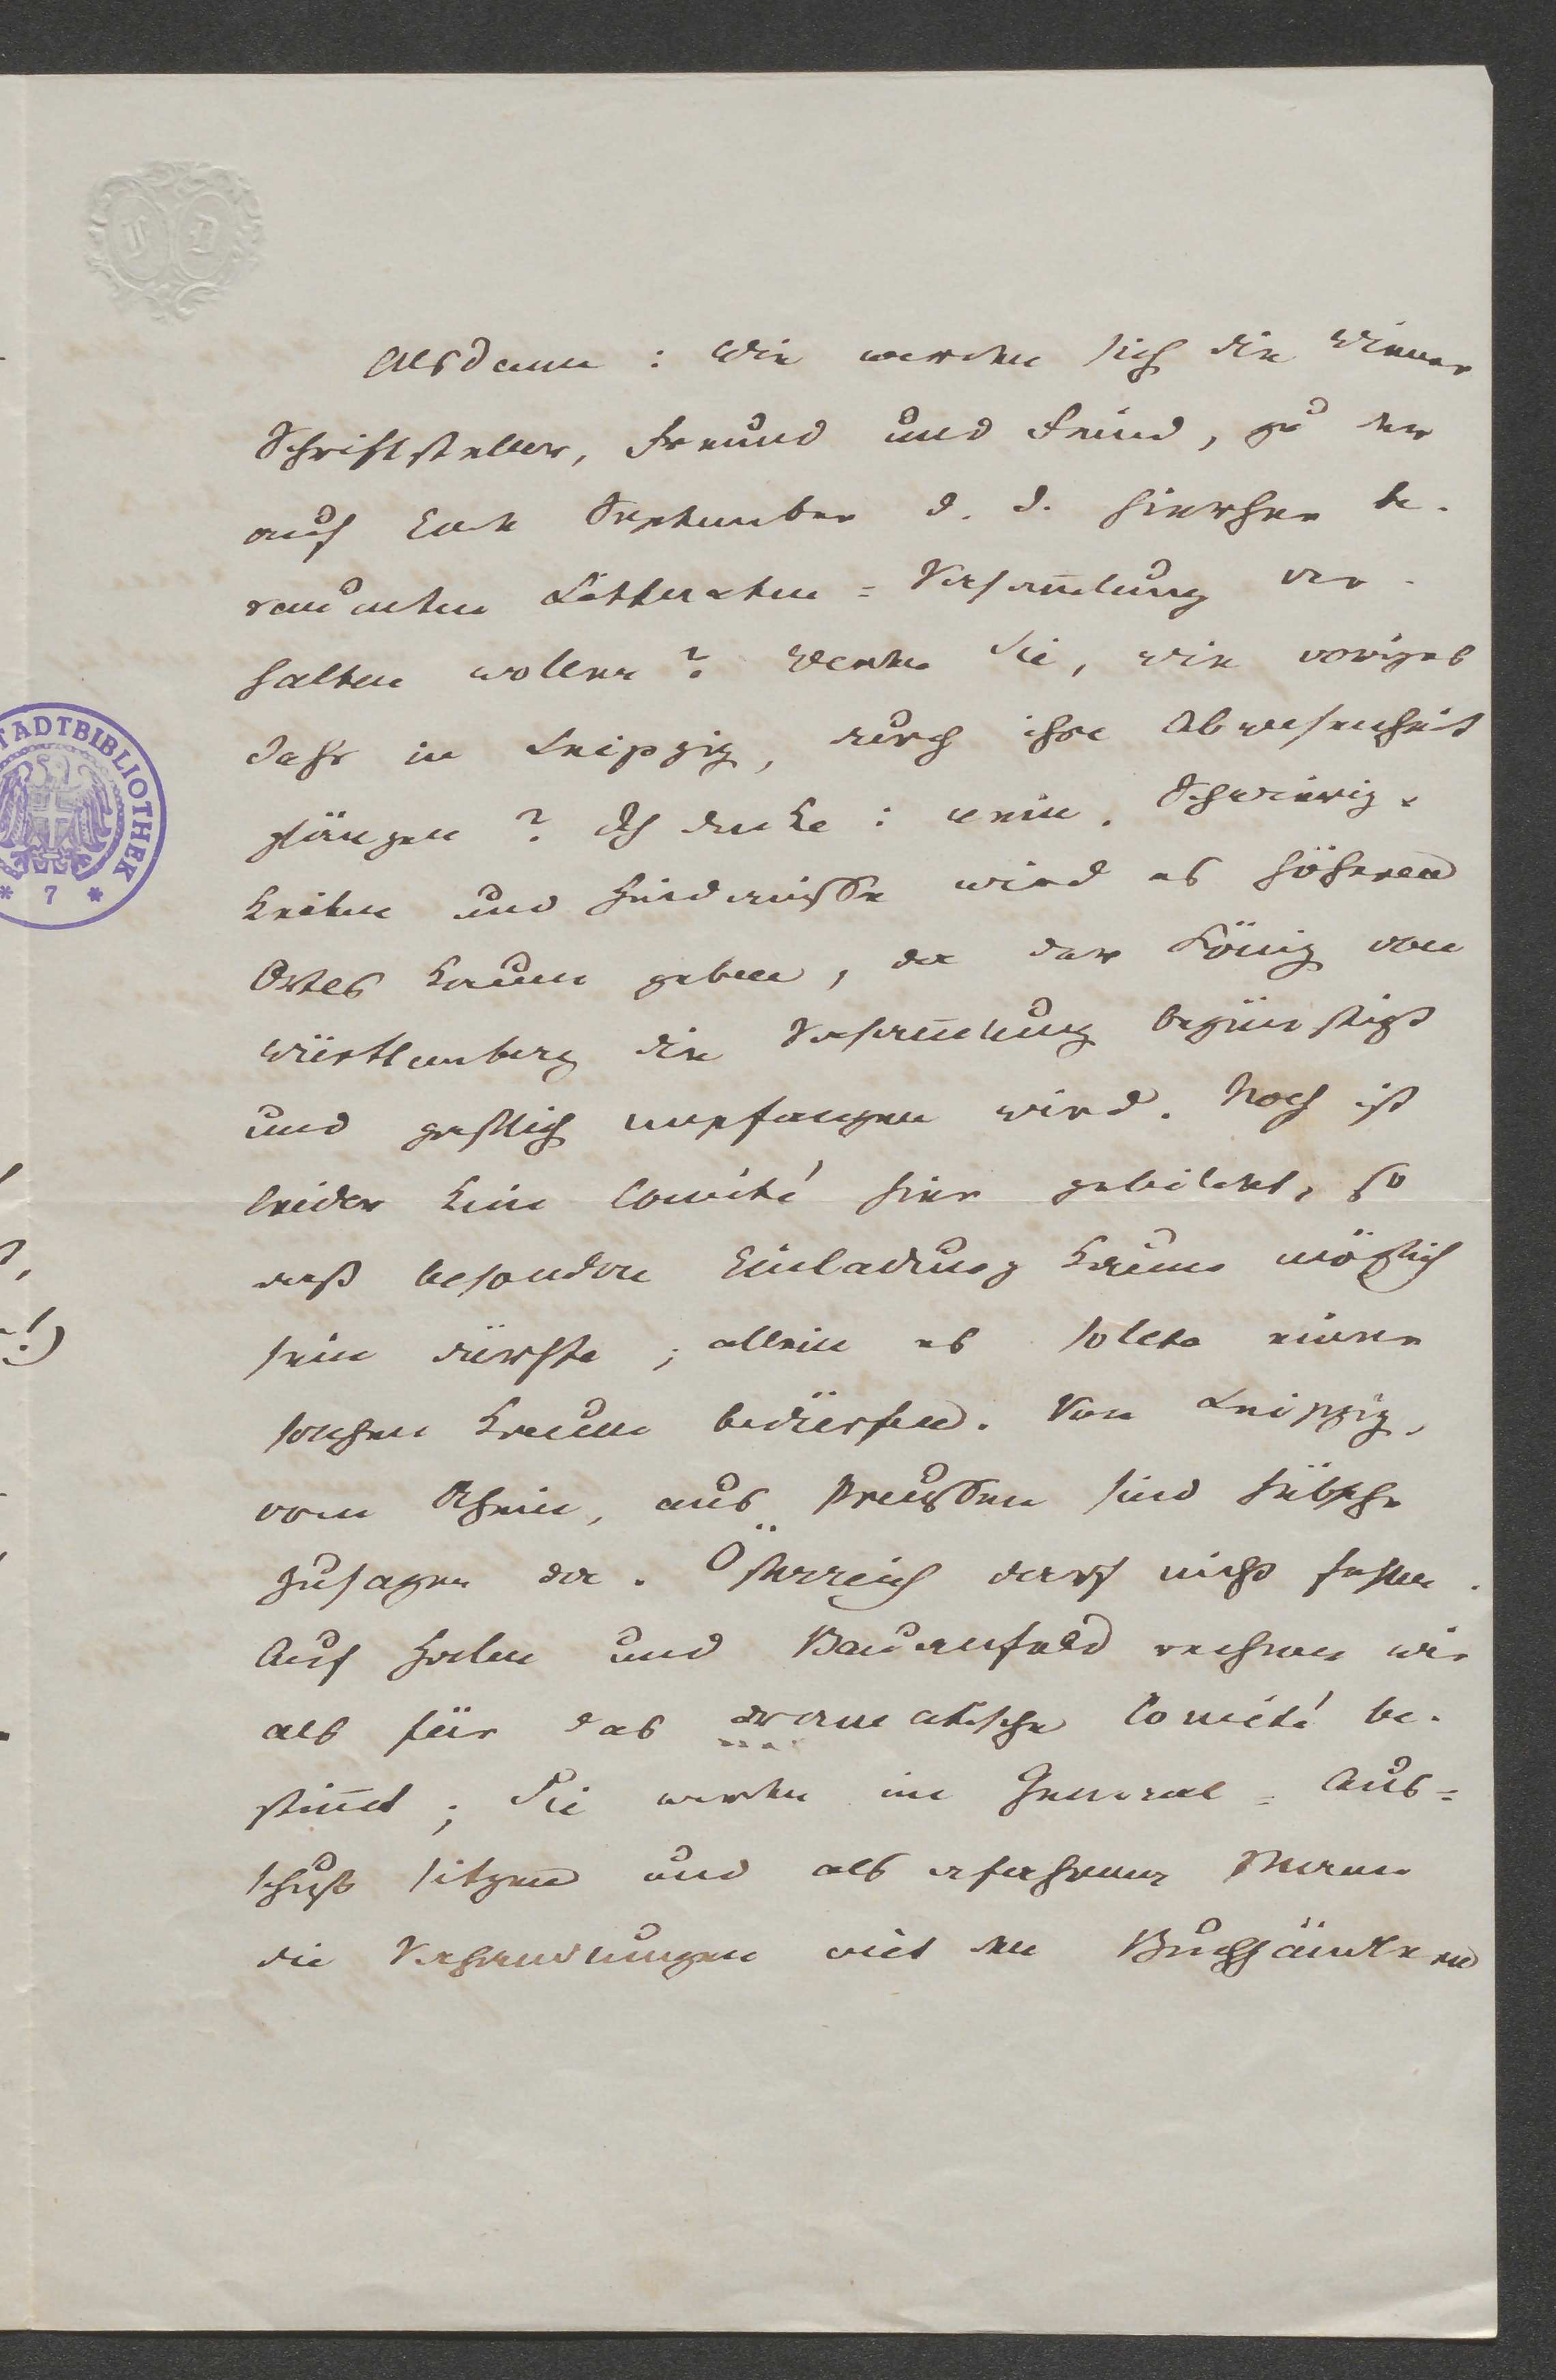 Alsdann: Wie werden sich die Wiener
Schriftsteller, Freund und Feind, zu der
auf Ende September d. J. hierher be-
raumten Litteraten-Versam̄lung ver-
halten wollen? Werden sie, wie voriges
Jahr in Leipzig, durch ihre Abwesenheit
glänzen? Ich denke: nein. Schwierig-
keiten und Hindernisse wird es höheren
Ortes kaum geben, da der König von
Württemberg die Versam̄lung begünstigt
und gastlich empfangen wird. Noch ist
leider kein Comité hier gebildet, so
daß besondere Einladung kaum möglich
sein dürfte; allein es sollte einer
solchen kaum bedürfen. Von Leipzig,
vom Rhein, aus Preussen sind hübsche
Zusagen da. Österreich darf nicht fehlen.
Auf Halm und Bauernfeld rechnen wir
als für das dramatische Comité be-
stim̄t; Sie werden im General-Aus-
schuß sitzen und als erfahrener Mann
die Verhandlungen mit den Buchhändlern
STADTBIBLIOTHEK
* 7 *